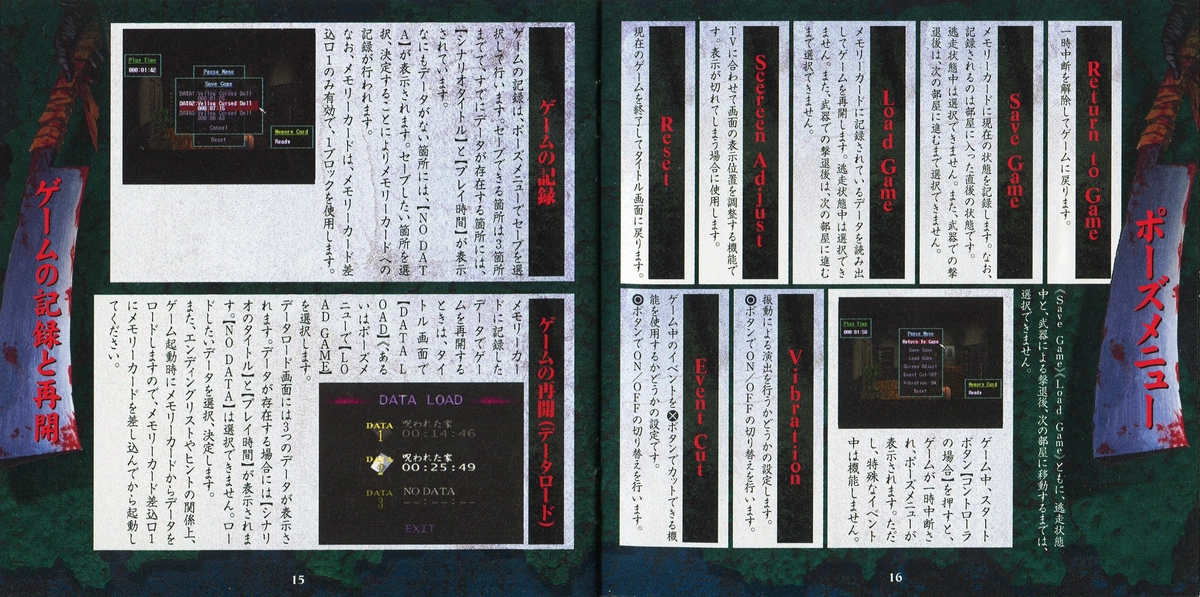 ゲームの記録と再開
ゲームの記録
ゲームの記録は、ポーズメニューでセーブを選
択して行います。セーブできる箇所は3箇所
までで、すでにデータが存在する箇所には、
【シナリオタイトル】と【プレイ時間】が表示
されています。
なにもデータがない箇所には、【NO DAT
A】が表示されます。セーブしたい箇所を選
択、決定することによりメモリーカードへの
記録が行われます。
なお、メモリーカードは、メモリーカード差
込口1のみ有効で、1ブロックを使用します。
Play Time
000:01:42
Pause Menu
Save Game
DATA1:Yellow Cursed Doll
DATA2:Yellow Cursed Doll
000:07:15
DATA3:Yellow Cursed Doll
Cancel
Reset
Memory Card
Ready
ゲームの再開(データロード)
メモリーカー
ドに記録した
データでゲー
ムを再開する
ときは、タイ
トル画面で
【DATA L
OAD】へある
いはポーズメ
ニューで【LO
AD GAME】
を選択します。
データロード画面には3つのデータが表示さ
れます。データが存在する場合には【シナリ
オのタイトル】と【プレイ時間】が表示されま
す。【NO DATA】は選択できません。ロー
ドしたいデータを選択、決定します。
また、エンディングリストやヒントの関係上、
ゲーム起動時にメモリーカードからデータを
ロードしますので、メモリーカード差込口1
にメモリーカードを差し込んでから起動し
てください。
DATA LOAD
DATA 1
呪われた家
00:14:46
DATA 2
呪われた家
00:25:49
DATA 3
NO DATA
--:--:--
EXIT
15
ポーズメニュー
Return to Game
一時中断を解除してゲームに戻ります。
Save Game
メモリーカードに現在の状態を記録します。なお、
記録されるのは部屋に入った直後の状態です。
逃走状態中は選択できません。また、武器での撃
退後は、次の部屋に進むまで選択できません。
Load Game
メモリーカードに記録されているデータを読み出
してゲームを再開します。逃走状態中は選択でき
ません。また、武器での撃退後は、次の部屋に進む
まで選択できません。
Screen Adjust
TVに合わせて画面の表示位置を調整する機能で
す。表示が切れてしまう場合に使用します。
Reset
現在のゲームを終了してタイトル画面に戻ります。
《Save Game》《Load Game》ともに、逃走状態
中と、武器による撃退後、次の部屋に移動するまでは、
選択できません。
Play Time
000:01:58
Pause Menu
Return To Game
Save Game
Load Game
Screen Adjust
Event Cut OFF
Vibration ON
Reset
Memory Card
Ready
ゲーム中、スタート
ボタン【コントローラ
の場合】を押すと、
ゲームが一時中断さ
れ、ポーズメニューが
表示されます。ただ
し、特殊なイベント
中は機能しません。
Vibration
振動による演出を行うかどうかの設定します。
◉ボタンでON/OFFの切り替えを行います。
Event Cut
ゲーム中のイベントを⊗ボタンでカットできる機
能を使用するかどうかの設定です。
◉ボタンでON/OFFの切り替えを行います。
16